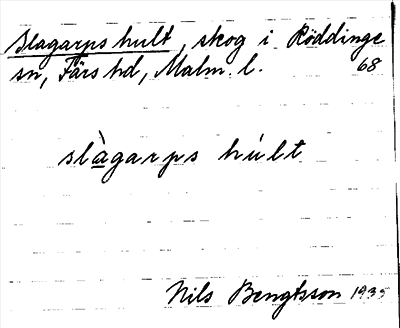 Slagarps hult, skog i Röddinge
sn, Färs hd, Malm. l. 68
slàgarps húlt
Nils Bengtsson 1935